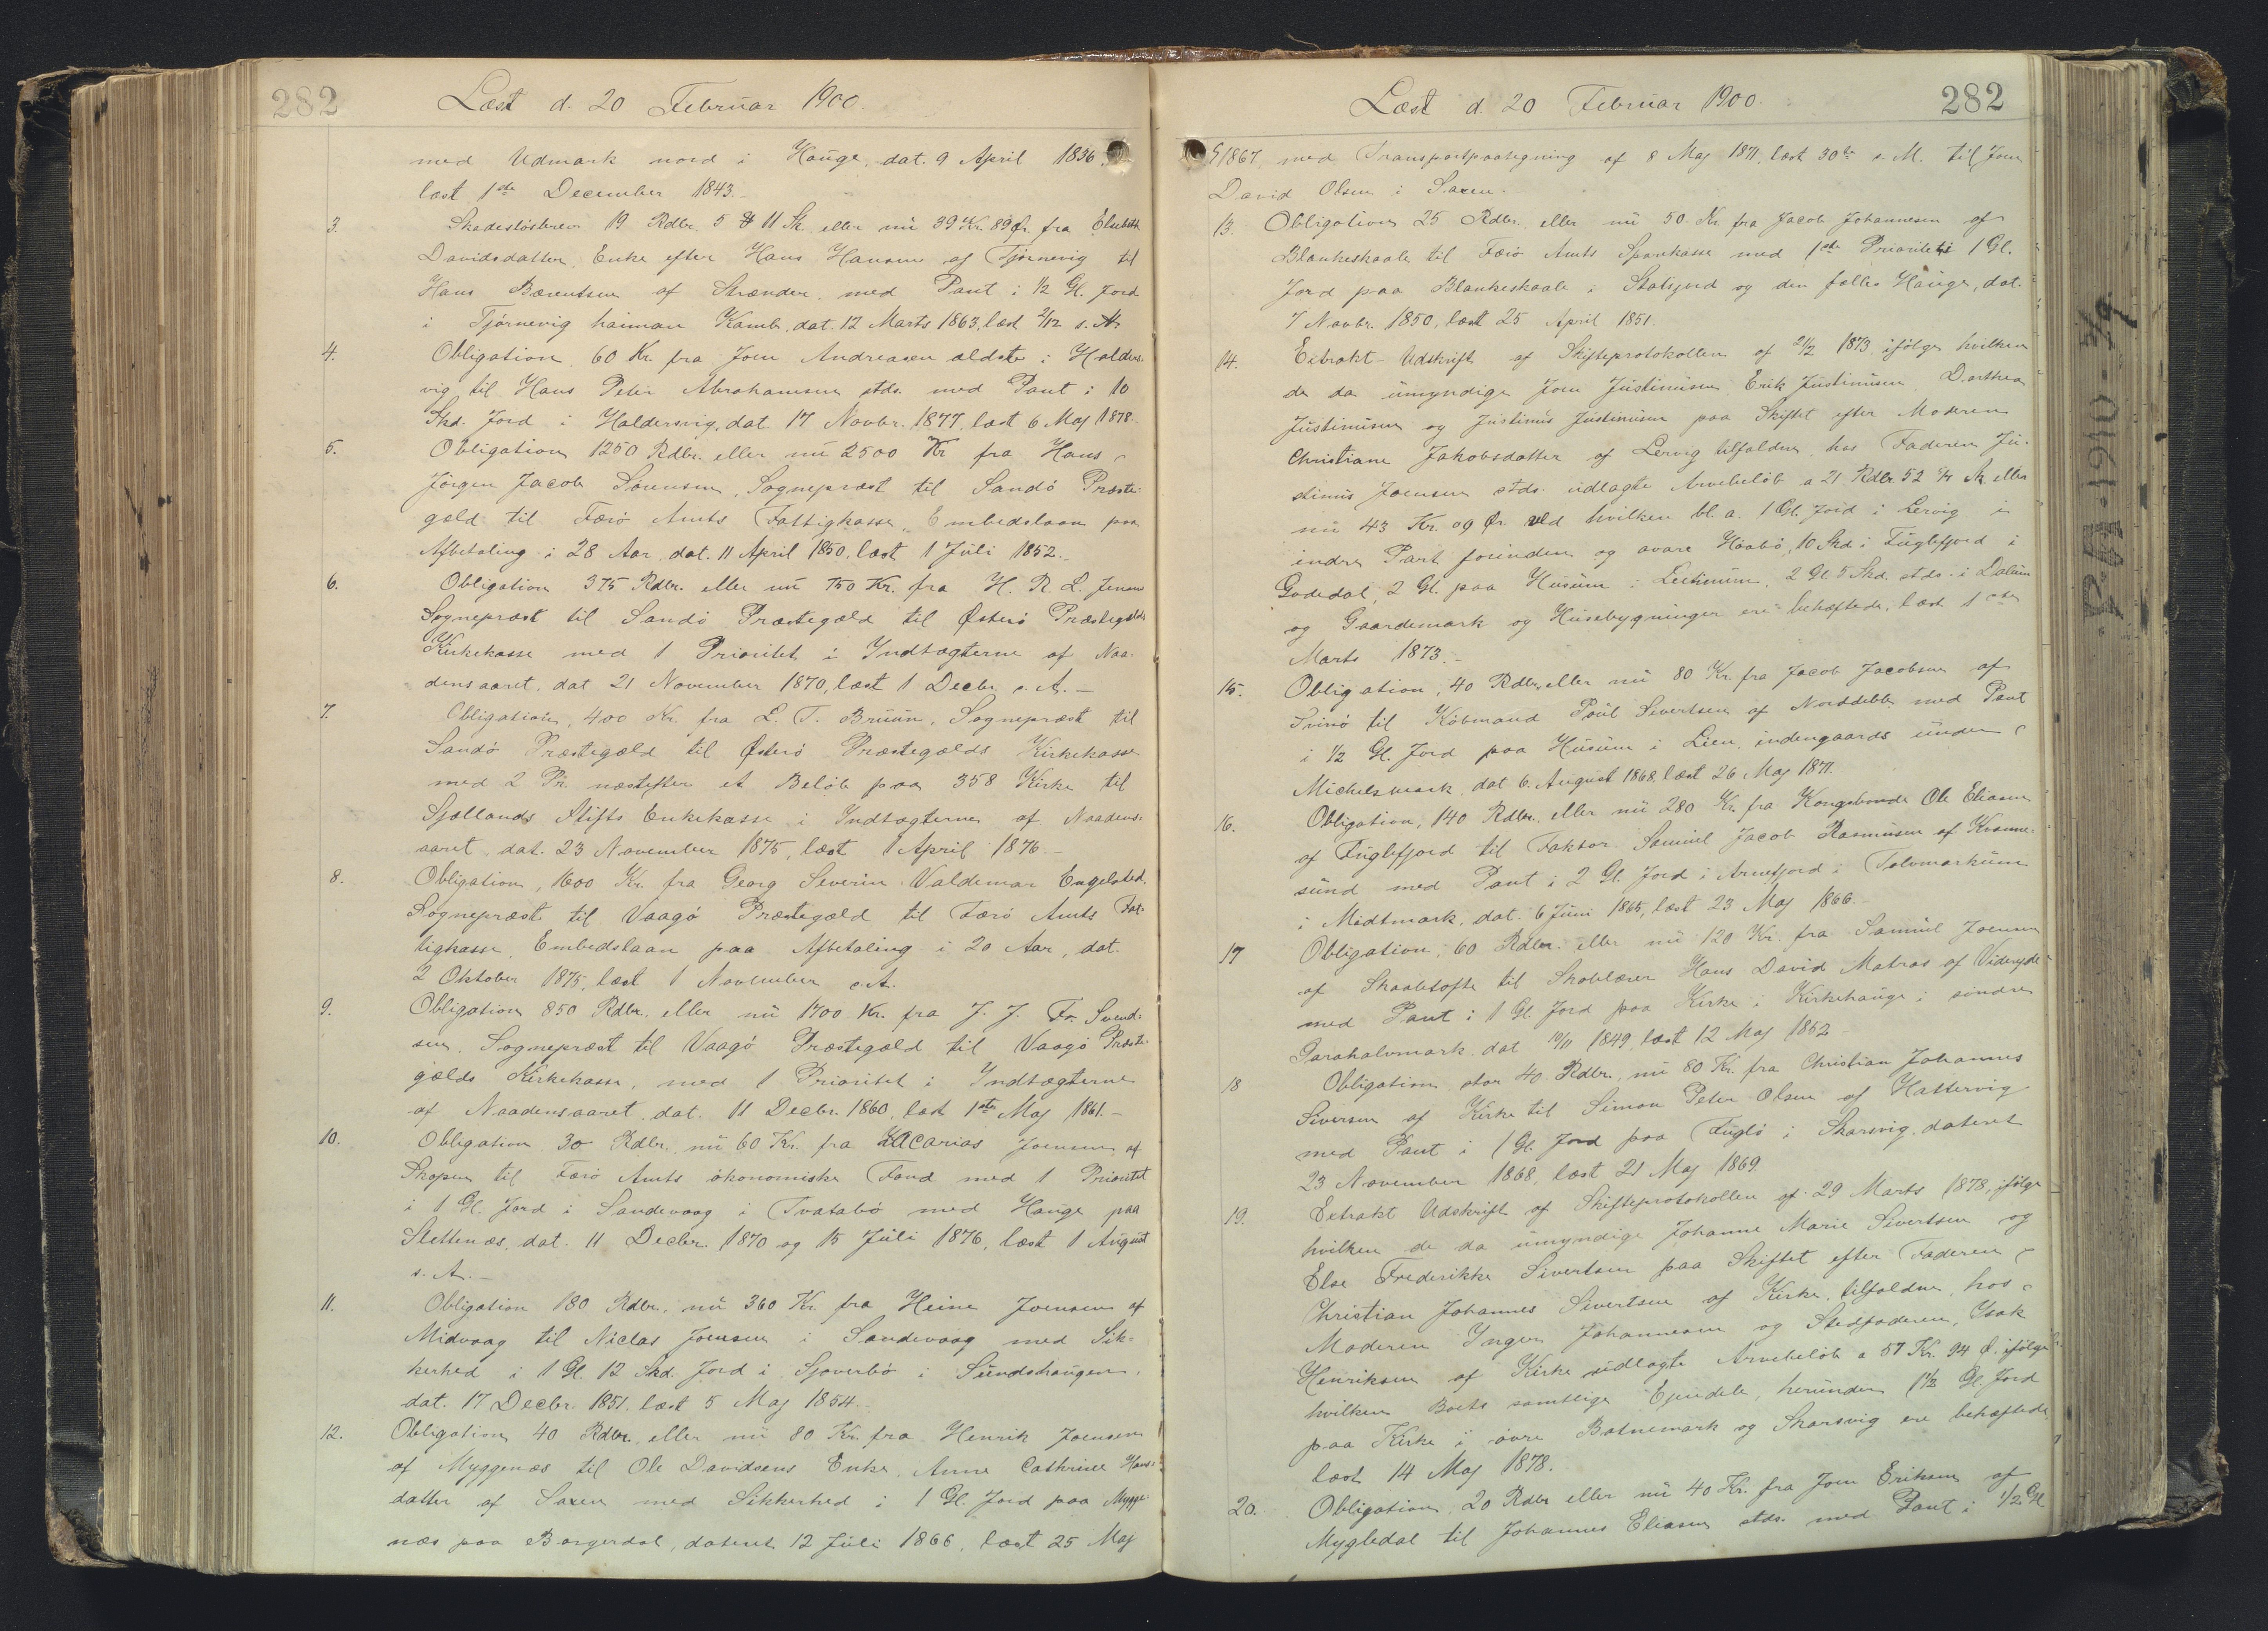 282
Læst d. 20 Februar 1900.
med Udmark nord i Hauge, dat. 9 April 1836,
læst 1ste December 1843.-
3. Skadesløsbrev 19 Rdlr. 5 ℔ 11 Sk. eller nu 39 Kr. 89 Ør. fra Elsebeth
Davidsdatter, Enke efter Hans Hansen af Tjørnevig til
Hans Bærentsen af Strænder, med Pant i 1/2 Gl. Jord
i Tjørnevig haiman Kamb, dat. 12 Marts 1863, læst 2/12 s. A.
4. Obligation 60 Kr. fra Joen Andreasen ældste i Halders-
vig til Hans Peter Abrahamsen stds. med Pant i 10
Skd. Jord i Haldersvig, dat 17 Novbr. 1877, læst 6 Maj 1878.
5. Obligation 1250 Rdlr. eller nu 2500 Kr fra Hans
Jörgen Jacob Sörensen, Sognepræst til Sandö Præste-
gæld til Færö Amts Fattigkasse, Embedslaan paa
Afbetaling i 28 Aar, dat. 11 April 1850, læst 1 Juli 1852.-
6. Obligation 375 Rdlr. eller nu 750 Kr. fra H. R. L. Jensen
Sognepræst til Sandö Præstegæld til Østerö Præstegælds
Kirkekasse med 1 Prioritet i Indtægterne af Naa-
densaaret, dat 21 November 1870, læst 1 Decbr. s. A.-
7. Obligation, 400 Kr. fra L. T. Bruun, Sognepræst til
Sandö Præstegæld til Østerö Præstegælds Kirkekasse
med 2 Pr. næstefter et Beløb paa 358 Kirke til
Sjællands Stifts Enkekasse i Indtægterne af Naadens-
aaret, dat. 23 November 1875, læst 1 April 1876.-
8. Obligation, 1600 Kr. fra Georg Severin Valdemar Engelsted,
Sognepræst til Vaagö Præstegæld til Færö Amts Fat-
tigkasse, Embedslaan paa Afbetaling i 20 Aar, dat.
2 Oktober 1875, læst 1 November s. A.
9. Obligation 850 Rdlr. eller nu 1700 Kr. fra J. J. Fr. Svend-
sen, Sognepræst til Vaagö Præstegæld til Vaagö Præste-
gælds Kirkekasse, med 1 Prioritet i Indtægterne
af Naadensaaret, dat. 11 Decbr. 1860, læst 1ste Maj 1861.-
10. Obligation 30 Rdlr. nu 60 Kr. fra Zacarias Joensen af
Skopen til Færö Amts ökonomiske Fond med 1 Prioritet
i 1 Gl. Jord i Sandevaag i Tvatabö med Hauge paa
Stettenæs, dat. 11 Decbr. 1870 og 15 Juli 1876, læst 1 August
s. A.-
11. Obligation 180 Rdlr. nu 360 Kr. fra Heine Joensen af
Midvaag til Niclas Joensen i Sandevaag med Sik-
kerhed i 1 Gl. 12 Skd. Jord i Sjoverbö i Sundshaugen,
dat. 17 Decbr. 1851, læst 5 Maj 1854.-
12. Obligation 40 Rdlr. eller nu 80 Kr. fra Henrik Joensen
af Myggenæs til Ole Davidsens Enke, Anne Cathrine Hans-
datter af Saxen med Sikkerhed i 1 Gl. Jord paa Mygge-
næs paa Borgerdal, dateret 12 Juli 1866, læst 25 Maj
Læst d. 20 Februar 1900.
282
1867, med Transportpaategning af 8 Maj 1871, læst 30te s. M. til Joen
David Olsen i Saxen.-
13. Obligation 25 Rdlr. eller nu 50 Kr. fra Jacob Johannesen af
Blankeskaale til Færö Amts Sparekasse med 1ste Prioritet i 1 Gl.
Jord paa Blankeskaale i Stalsjord og den fælles Hauge, dat.
7 Novbr. 1850, læst 25 April 1851.
14. Extrakt-Udskrift af Skifteprotokollen af 21/2 1873, ifølge hvilken
de da umyndige Joen Justinusen, Erik Justinusen, Dorthea
Justinusen og Justinus Justinusen paa Skiftet efter Moderen
Christiane Jakobsdatter af Lervig tilfaldne, hos Faderen Ju-
stinus Joensen stds. udlagte Arvebeløb a 21 Rdlr. 52 Sk. eller
nu 43 Kr. 09 Ør. ved hvilken bl. a. 1 Gl. Jord i Lervig i
indre Part forinden og ovare Haabö, 10 Skd. i Fuglefjord i
Godedal, 2 Gl. paa Husum i Lesteinum, 2 Gl. 5 Skd. stds. i Dalum
og Gaardemark og Husebygninger ere behæftede, læst 1ste
Marts 1873.-
15. Obligation, 40 Rdlr. eller nu 80 Kr. fra Jacob Jacobsen af
Svinö til Købmand Poul Sivertsen af Norddeble med Pant
i 1/2 Gl. Jord paa Husum i Lien, indengaards under
Michelsmark, dat 6. August 1868, læst 26 Maj 1871.
16. Obligation, 140 Rdlr. eller nu 280 Kr. fra Kongsbonde Ole Eliasen
af Fuglefjord til Faktor Samuel Jacob Rasmusen af Kvanne-
sund med Pant i 2 Gl. Jord i Arnefjord i Tolvmarkum
i Midtmark, dat. 6 Juni 1865, læst 23 Maj 1866.-
17 Obligation, 60 Rdlr. eller nu 120 Kr. fra Samuel Joensen
af Skaaletofte til Skolelærer Hans David Matras af Videreide
med Pant i 1 Gl. Jord paa Kirke i Kirkehauge i söndre
Garahalvmark dat 19/11 1849, læst 12 Maj 1852.-
18 Obligation stor 40 Rdlr., nu 80 Kr. fra Christian Johannes
Siversen af Kirke til Simon Peter Olsen af Hattervig
med Pant i 1 Gl. Jord paa Fuglö i Skarsvig, dateret
23 November 1868, læst 21 Maj 1869.
19. Extrakt Udskrift af Skifteprotokollen af 29 Marts 1878, ifølge
hvilken de da umyndige Johanne Marie Sivertsen og
Else Frederikke Sivertsen paa Skiftet efter Faderen
Christian Johannes Sivertsen af Kirke, tilfaldne, hos
Moderen Inger Johannesen og Stedfaderen, Isak
Henriksen af Kirke udlagte Arvebeløb a 57 Kr. 94 Ø. ifølge
hvilken Boets samtlige Ejendele, herunder 1 1/2 Gl. Jord
paa Kirke i övre Botnemark og Skarsvig ere behæftede,
læst 14 Maj 1878.
20. Obligation, 20 Rdlr eller nu 40 Kr. fra Joen Eriksen af
Mygledal til Johannes Eliasen stds. med Pant i 1/2 Gl.